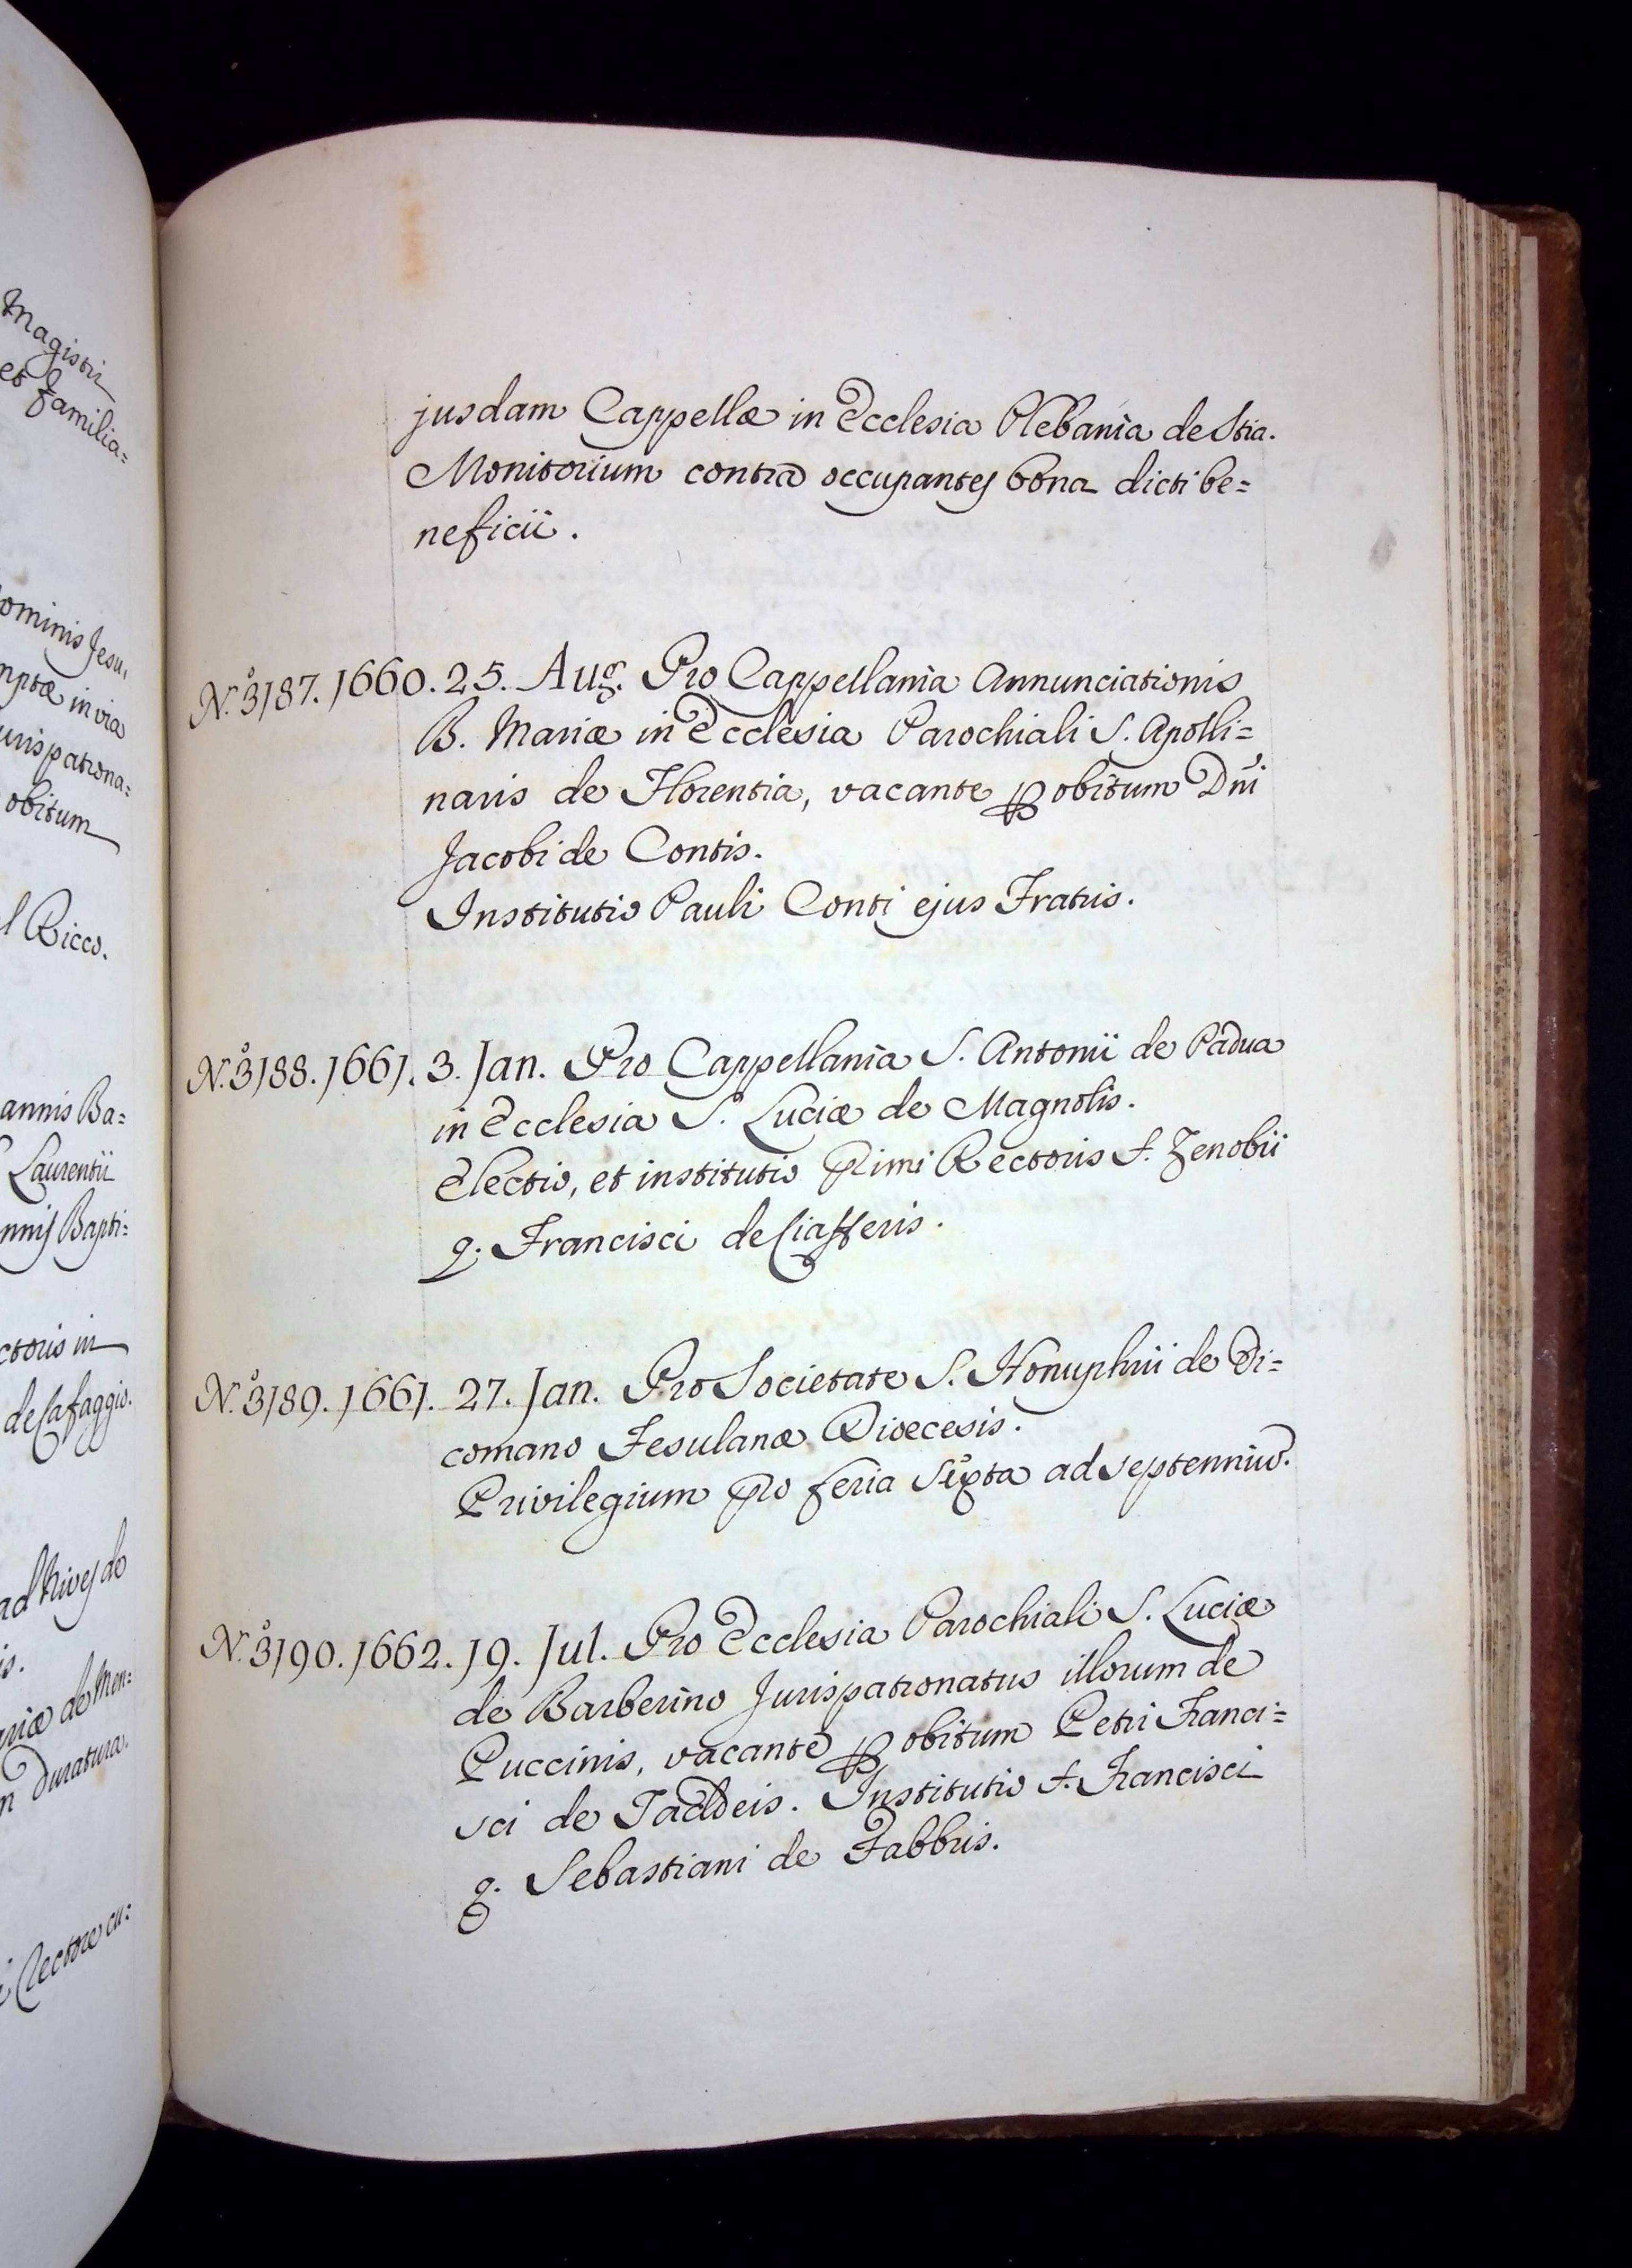 Magistri
et familia=
ominis Jesu,
mptæ in via
urispatrona=
obitum
l Ricco.
annis Ba=
Laurentii
nnis Bapti=
ctoris in
de Cafaggio.
ad Nives de
is.
riæ de Men=
n Duratura.
Rectore cu=
jusdam Cappellæ in Ecclesia Plebania de Stia.
Monitorium contra occupantes bona dicti be=
neficii.
N.º 3187. 1660. 25. Aug. Pro Cappellania Annunciationis
B. Mariæ in Ecclesia Parochiali S. Apolli=
naris de Florentia, vacante ꝑ obitum Dñi
Jacobi de Contis.
Institutio Pauli Conti ejus Fratris.
N.º 3188. 1661. 3. Jan. Pro Cappellania S. Antonii de Padua
in Ecclesia S. Luciæ de Magnolis.
Electio, et institutio Primi Rectoris f. Zenobii
q. Francisci de Ciafferis.
N.º 3189. 1661. 27. Jan. Pro Societate S. Honuphrii de Di=
comano Fesulanæ Dioecesis.
Privilegium pro feria Sexta ad septenniũ.
N.º 3190. 1662. 19. Jul. Pro Ecclesia Parochiali S. Luciæ
de Barberino Jurispatronatus illorum de
Puccinis, vacante ꝑ obitum Petri Franci=
sci de Taddeis. Institutio f. Francisci
q. Sebastiani de Fabbris.